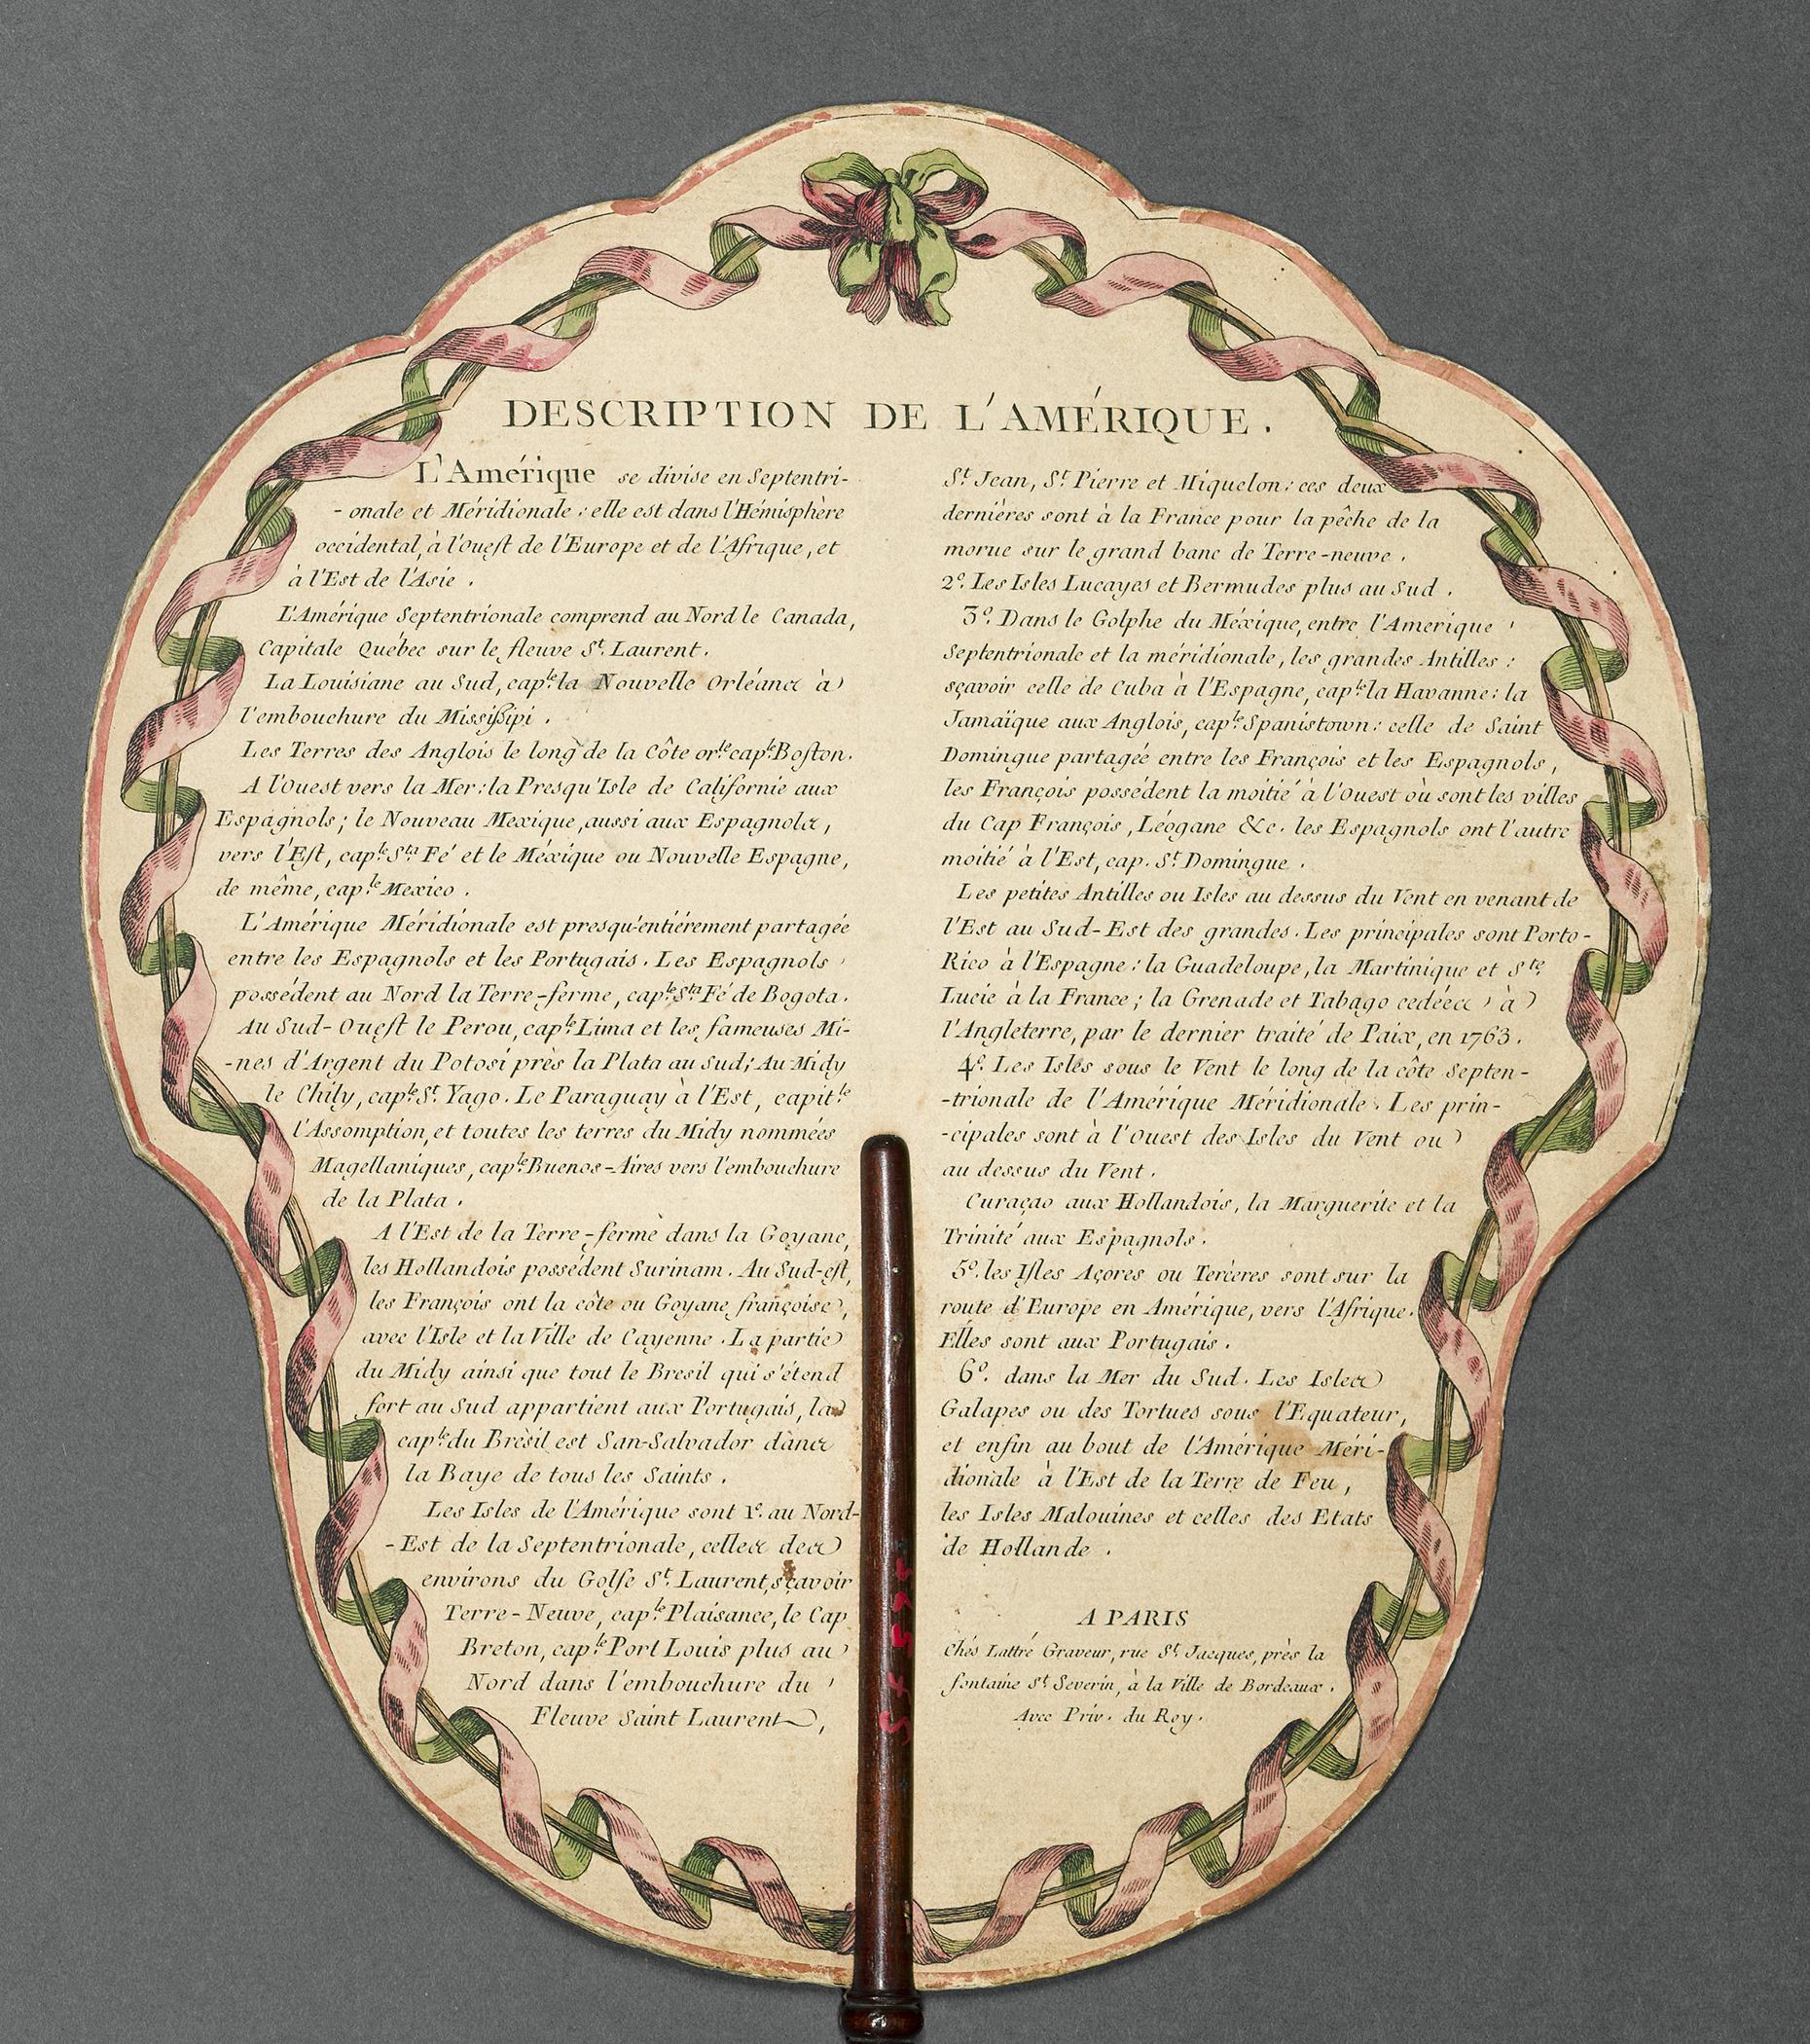 DESCRIPTION DE L'AMÉRIQUE.
L'Amérique se divise en Septentri-
- onale et Méridionale : elle est dans l'Hémisphère
occidental, à l'Ouest de l'Europe et de l'Afrique, et
à l'Est de l'Asie .
L'Amérique Septentrionale comprend au Nord le Canada,
Capitale Québec sur le fleuve St. Laurent.
La Louisiane au Sud, caple. la Nouvelle Orléans à
l'embouchure du Missißipi .
Les Terres des Anglois le long de la Côte orle. caple. Boston.
A l'Ouest vers la Mer: la Presqu'Isle de Californie aux
Espagnols; le Nouveau Mexique, aussi aux Espagnols,
vers l'Est, caple. Sta. Fé et le Méxique ou Nouvelle Espagne,
de même, caple. Mexico .
L'Amérique Méridionale est presqu'entiérement partagée
entre les Espagnols et les Portugais. Les Espagnols
possédent au Nord la Terre-ferme, caple. Sta. Fé de Bogota.
Au Sud-Ouest le Perou, caple. Lima et les fameuses Mi-
-nes d'Argent du Potosi près la Plata au Sud; Au Midy
le Chily, caple. St. Yago. Le Paraguay à l'Est, capitle.
l'Assomption, et toutes les terres du Midy nommées
Magellaniques, caple. Buenos-Aires vers l'embouchure
de la Plata .
A l'Est de la Terre-ferme dans la Goyane,
les Hollandois possédent Surinam. Au Sud-est,
les François ont la côte ou Goyane françoise,
avec l'Isle et la Ville de Cayenne. La partie
du Midy ainsi que tout le Bresil qui s'étend
fort au Sud appartient aux Portugais, la
caple. du Brèsil est San-Salvador dans
la Baye de tous les Saints .
Les Isles de l'Amérique sont 1o. au Nord-
-Est de la Septentrionale, celles des
environs du Golfe St. Laurent, sçavoir
Terre-Neuve, caple. Plaisance, le Cap
Breton, caple. Port Louis plus au
Nord dans l'embouchure du
Fleuve Saint Laurent,
St. Jean, St. Pierre et Miquelon: ces deux
dernières sont à la France pour la pêche de la
morue sur le grand banc de Terre-neuve .
2o. Les Isles Lucayes et Bermudes plus au Sud .
3o. Dans le Golphe du Méxique, entre l'Amerique
Septentrionale et la méridionale, les grandes Antilles :
sçavoir celle de Cuba à l'Espagne, caple. la Havanne: la
Jamaïque aux Anglois, caple. Spanistown: celle de Saint
Domingue partagée entre les François et les Espagnols,
les François possédent la moitié à l'Ouest où sont les villes
du Cap François, Léogane &c. les Espagnols ont l'autre
moitié à l'Est, cap. St. Domingue .
Les petites Antilles ou Isles au dessus du Vent en venant de
l'Est au Sud-Est des grandes. Les principales sont Porto-
Rico à l'Espagne: la Guadeloupe, la Martinique et Ste.
Lucie à la France; la Grenade et Tabago cedées à
l'Angleterre, par le dernier traité de Paix, en 1763.
4o. Les Isles sous le Vent le long de la côte Septen-
-trionale de l'Amérique Méridionale. Les prin-
-cipales sont à l'Ouest des Isles du Vent ou
au dessus du Vent .
Curaçao aux Hollandois, la Marguerite et la
Trinité aux Espagnols.
5o. les Isles Açores ou Terceres sont sur la
route d'Europe en Amérique, vers l'Afrique.
Elles sont aux Portugais .
6o. dans la Mer du Sud. Les Isles
Galapes ou des Tortues sous l'Equateur,
et enfin au bout de l'Amérique Méri-
dionale à l'Est de la Terre de Feu,
les Isles Malouines et celles des Etats
de Hollande .
A PARIS
Chés Lattré Graveur, rue St. Jacques, près la
fontaine St. Severin, à la Ville de Bordeaux .
Avec Priv. du Roy.